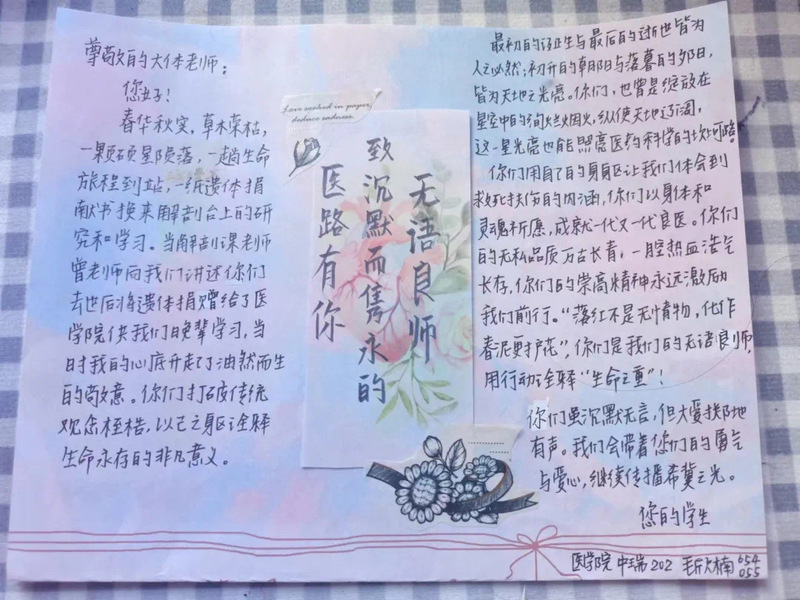 尊敬的大体老师:
您好!
春华秋实,草木荣枯,
一颗硕星陨落,一趟生命
旅程到站,一纸遗体捐
献书换来解剖台上的研
究和学习。当解剖课老师
曾老师向我们讲述你们
去世后将遗体捐赠给了医
学院供我们晚辈学习,当
时我的心底升起了油然而生
的敬意。你们打破传统
观念桎梏,以己之身躯诠释
生命永存的非凡意义。
Love soaked in paper,
deduce sadness.
无语良师
致沉默而隽永的
医路有你
最初的诞生与最后的逝世皆为
人之必然;初升的朝阳与落暮的夕阳,
皆为天地之光亮。你们,也曾是绽放在
星空中的绚烂烟火,纵使天地辽阔,
这一星光亮也能照亮医药科学的坎坷路。
你们用自己的身躯让我们体会到
救死扶伤的内涵,你们以身体和
灵魂祈愿,成就一代又一代良医。你们
的无私品质万古长青,一腔热血浩气
长存,你们的崇高精神永远激励
我们前行。“落红不是无情物,化作
春泥更护花”,你们是我们的无语良师,
用行动诠释“生命之重”!
你们虽沉默无言,但大爱挨地
有声。我们会带着您们的勇气
与爱心,继续传播希冀之光。
您的学生
医学院 中瑞202 毛欣楠 654
055